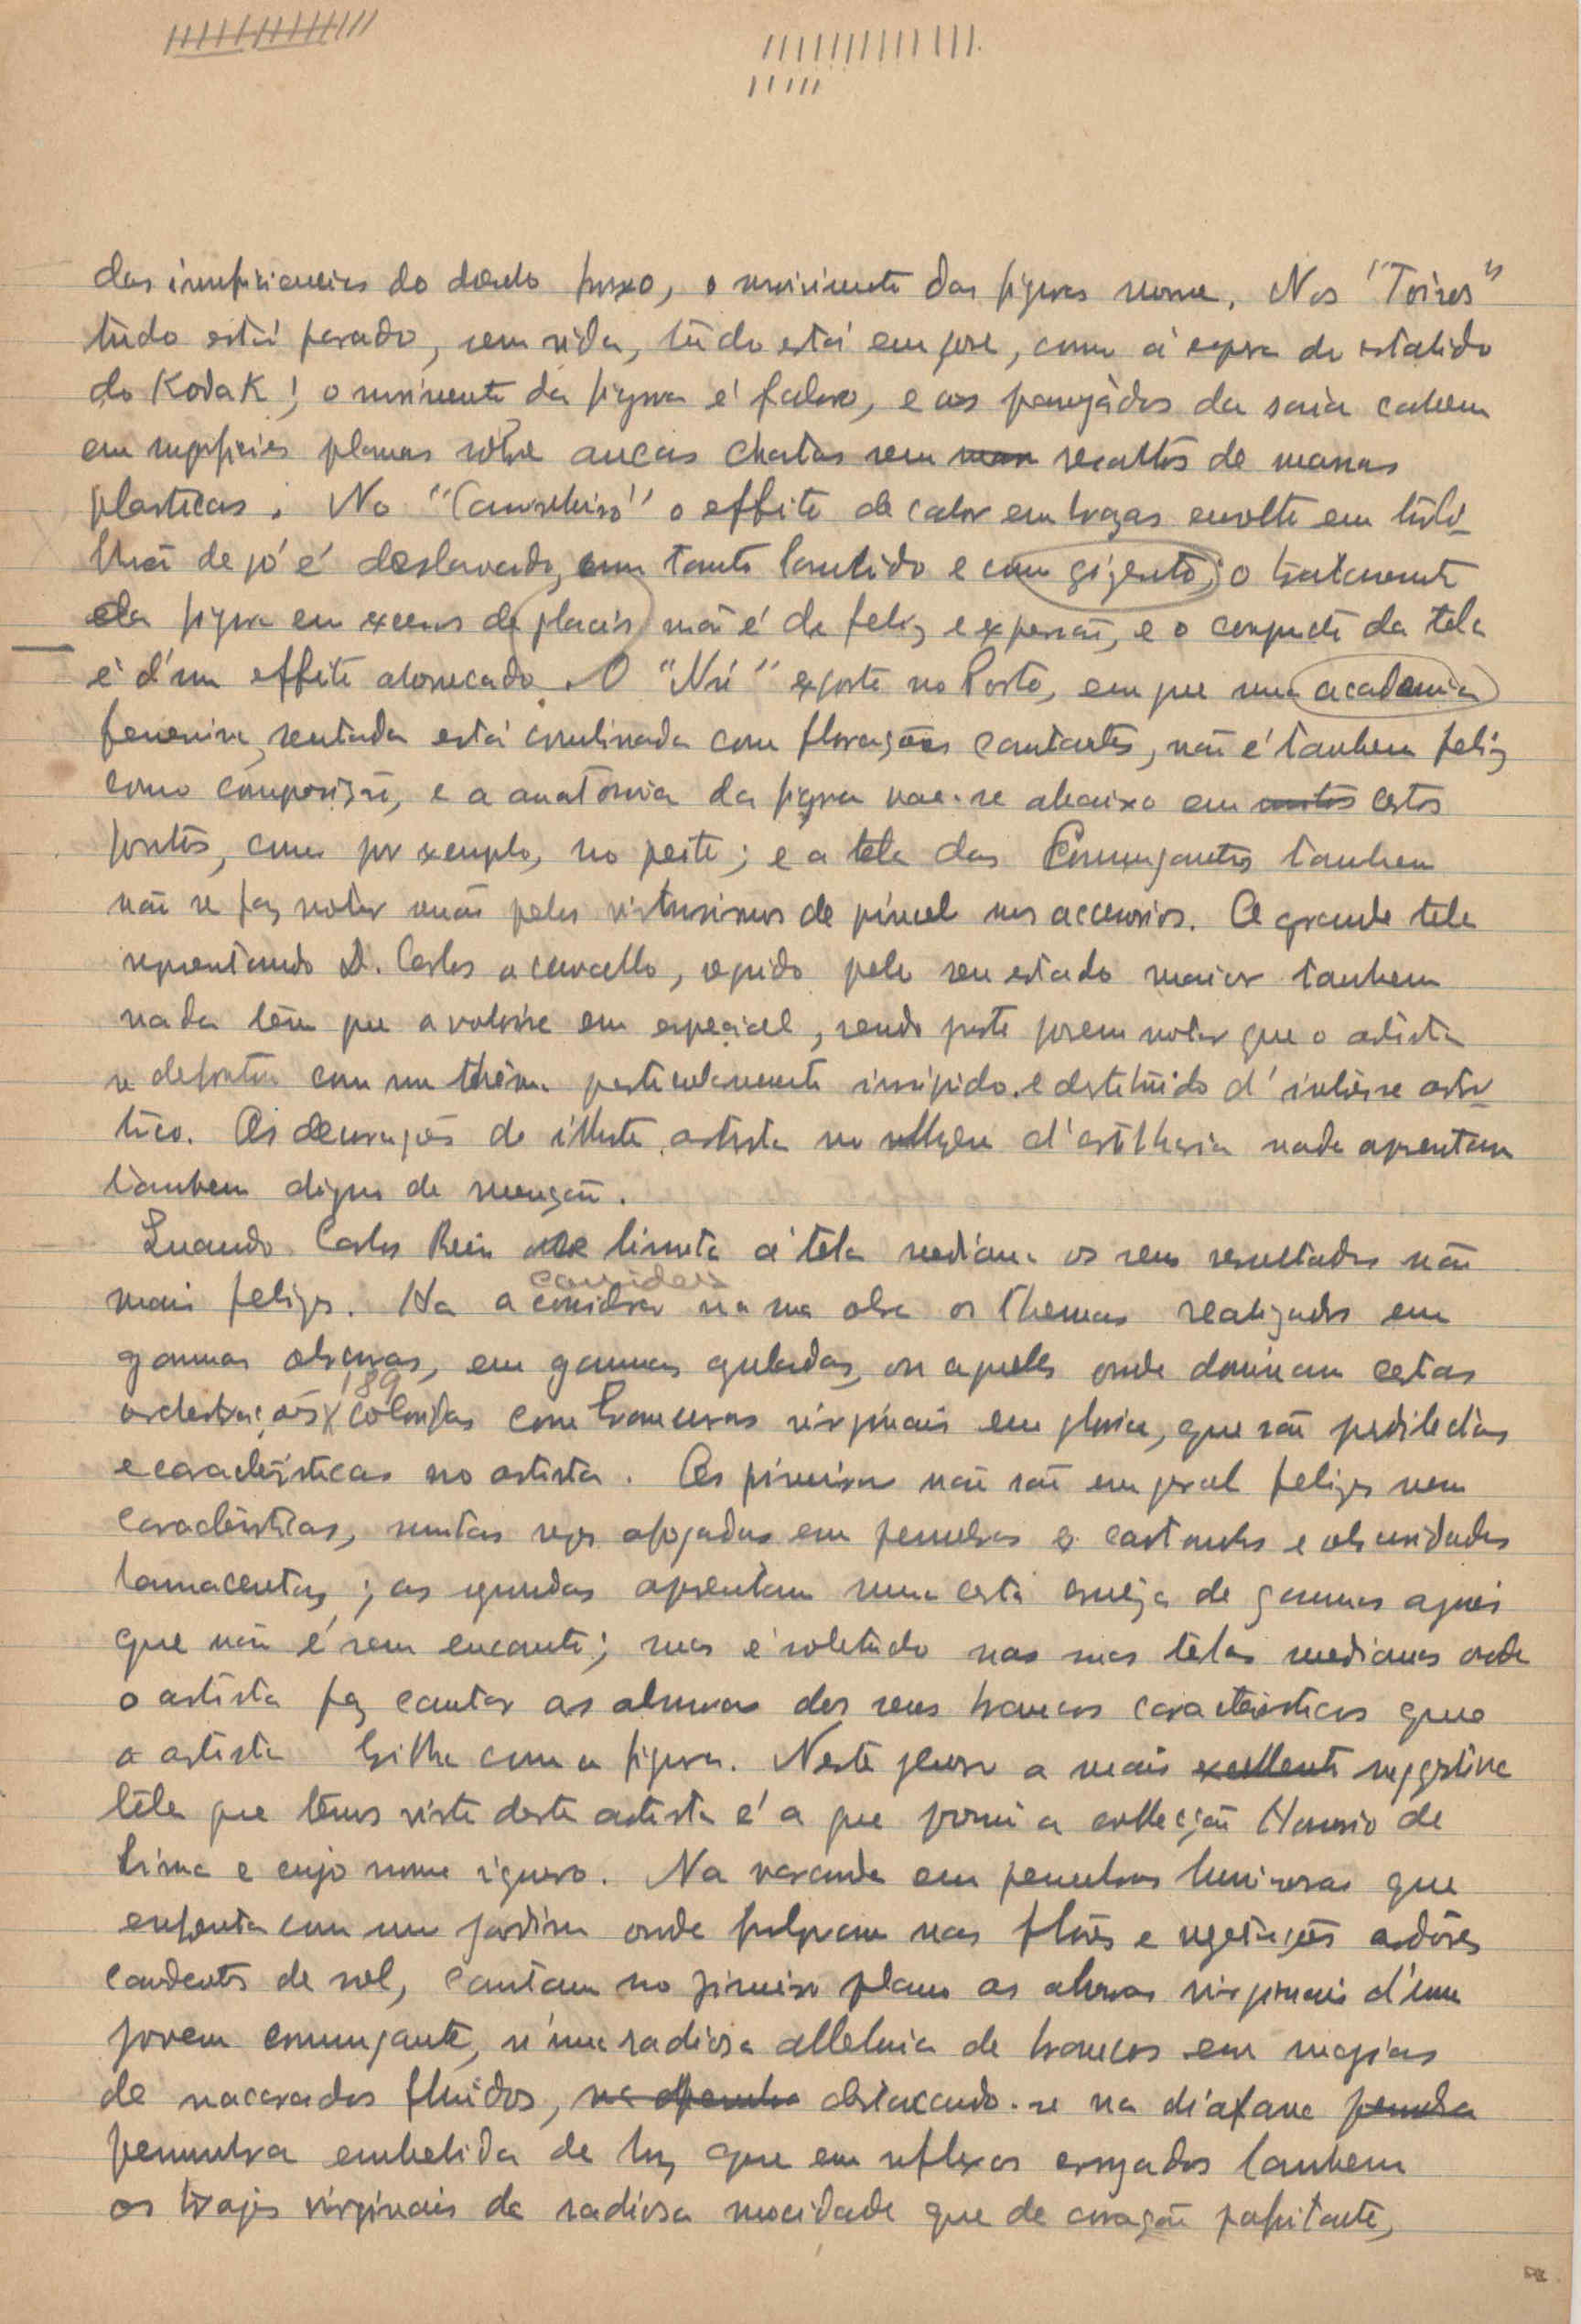 das insuficiencias do doirado frouxo, o movimento das figuras morre. Nos "Toiros"
tudo está parado, sem vida, tudo está em pose, como á espera do estalido
do Kodak; o movimento da figura é falso, e os panejádos da saia cahem
em superficies planas sôbre ancas chatas sem resaltos de massas
plasticas. No "Caminheiro" o effeito de calor em brazas envolto em turbi-
lhão de pó é deslavado, um tanto lambido e com gigento; o tratamento
da figura em excesso de placas não é de feliz expressão, e o conjuncto da tela
é d'um effeito adoucado. O "Nú" exposto no Porto, em que uma academia
femenina, sentada está combinada com florações cantantes, não é tambem feliz
como composição, e a anatomia da figura vae-se abaixo em muitos certos
pontos, como por exemplo, no peito; e a tela das Comungantes tambem
não se faz notar senão pelos virtuosismos de pincel nos accessorios. A grande tela
representando D. Carlos a cavallo, seguido pelo seu estado maior tambem
nada têm que a valorise em especial, sendo justo porem notar que o artista
se defrontou com um thêma particularmente insipido e destituido d'interesse artis-
tico. As decorações do illustre artista no museu d'artilharia nada apresentam
tambem digno de menção.
Quando Carlos Reis se limita á tela mediana os seus resultados são
mais felizes. Ha a considerar na sua obra os themas realizados em
considerar
gammas obscuras, em gammas azuladas, ou aquelles onde dominam certas
189
orchestrações coloridas com brancuras virginais em gloria, que são predilectas
e caracteristicas no artista. As primeiras não são em geral felizes nem
caracteristicas, muitas vezes afogadas em penumbras e castanhos e obscuridades
lamacentas; as segundas apresentam uma certa justeza de gammas azues
que não é sem encanto; mas é sobretudo nas suas telas medianas onde
o artista faz cantar as alvuras dos seus brancos caracteristicos que
o artista brilha com a figura. Neste genero a mais excellente suggestiva
tela que têmos visto deste artista é a que possui a collecção Honorio de
Lima e cujo nome ignoro. Na varanda em penumbras luminosas que
enfrenta com um jardim onde fulguram nas flôres e vegetações ardôres
candentes de sol, cantam no primeiro plano as alvuras virginais d'uma
jovem comungante, n'uma radiosa alleluia de brancos em magias
de nacarados fluidos, destacando-se na diáfana penumbra
penumbra embebida de luz, que em reflexos cruzados banham
os trajes virginais da radiosa mocidade que de coração palpitante,